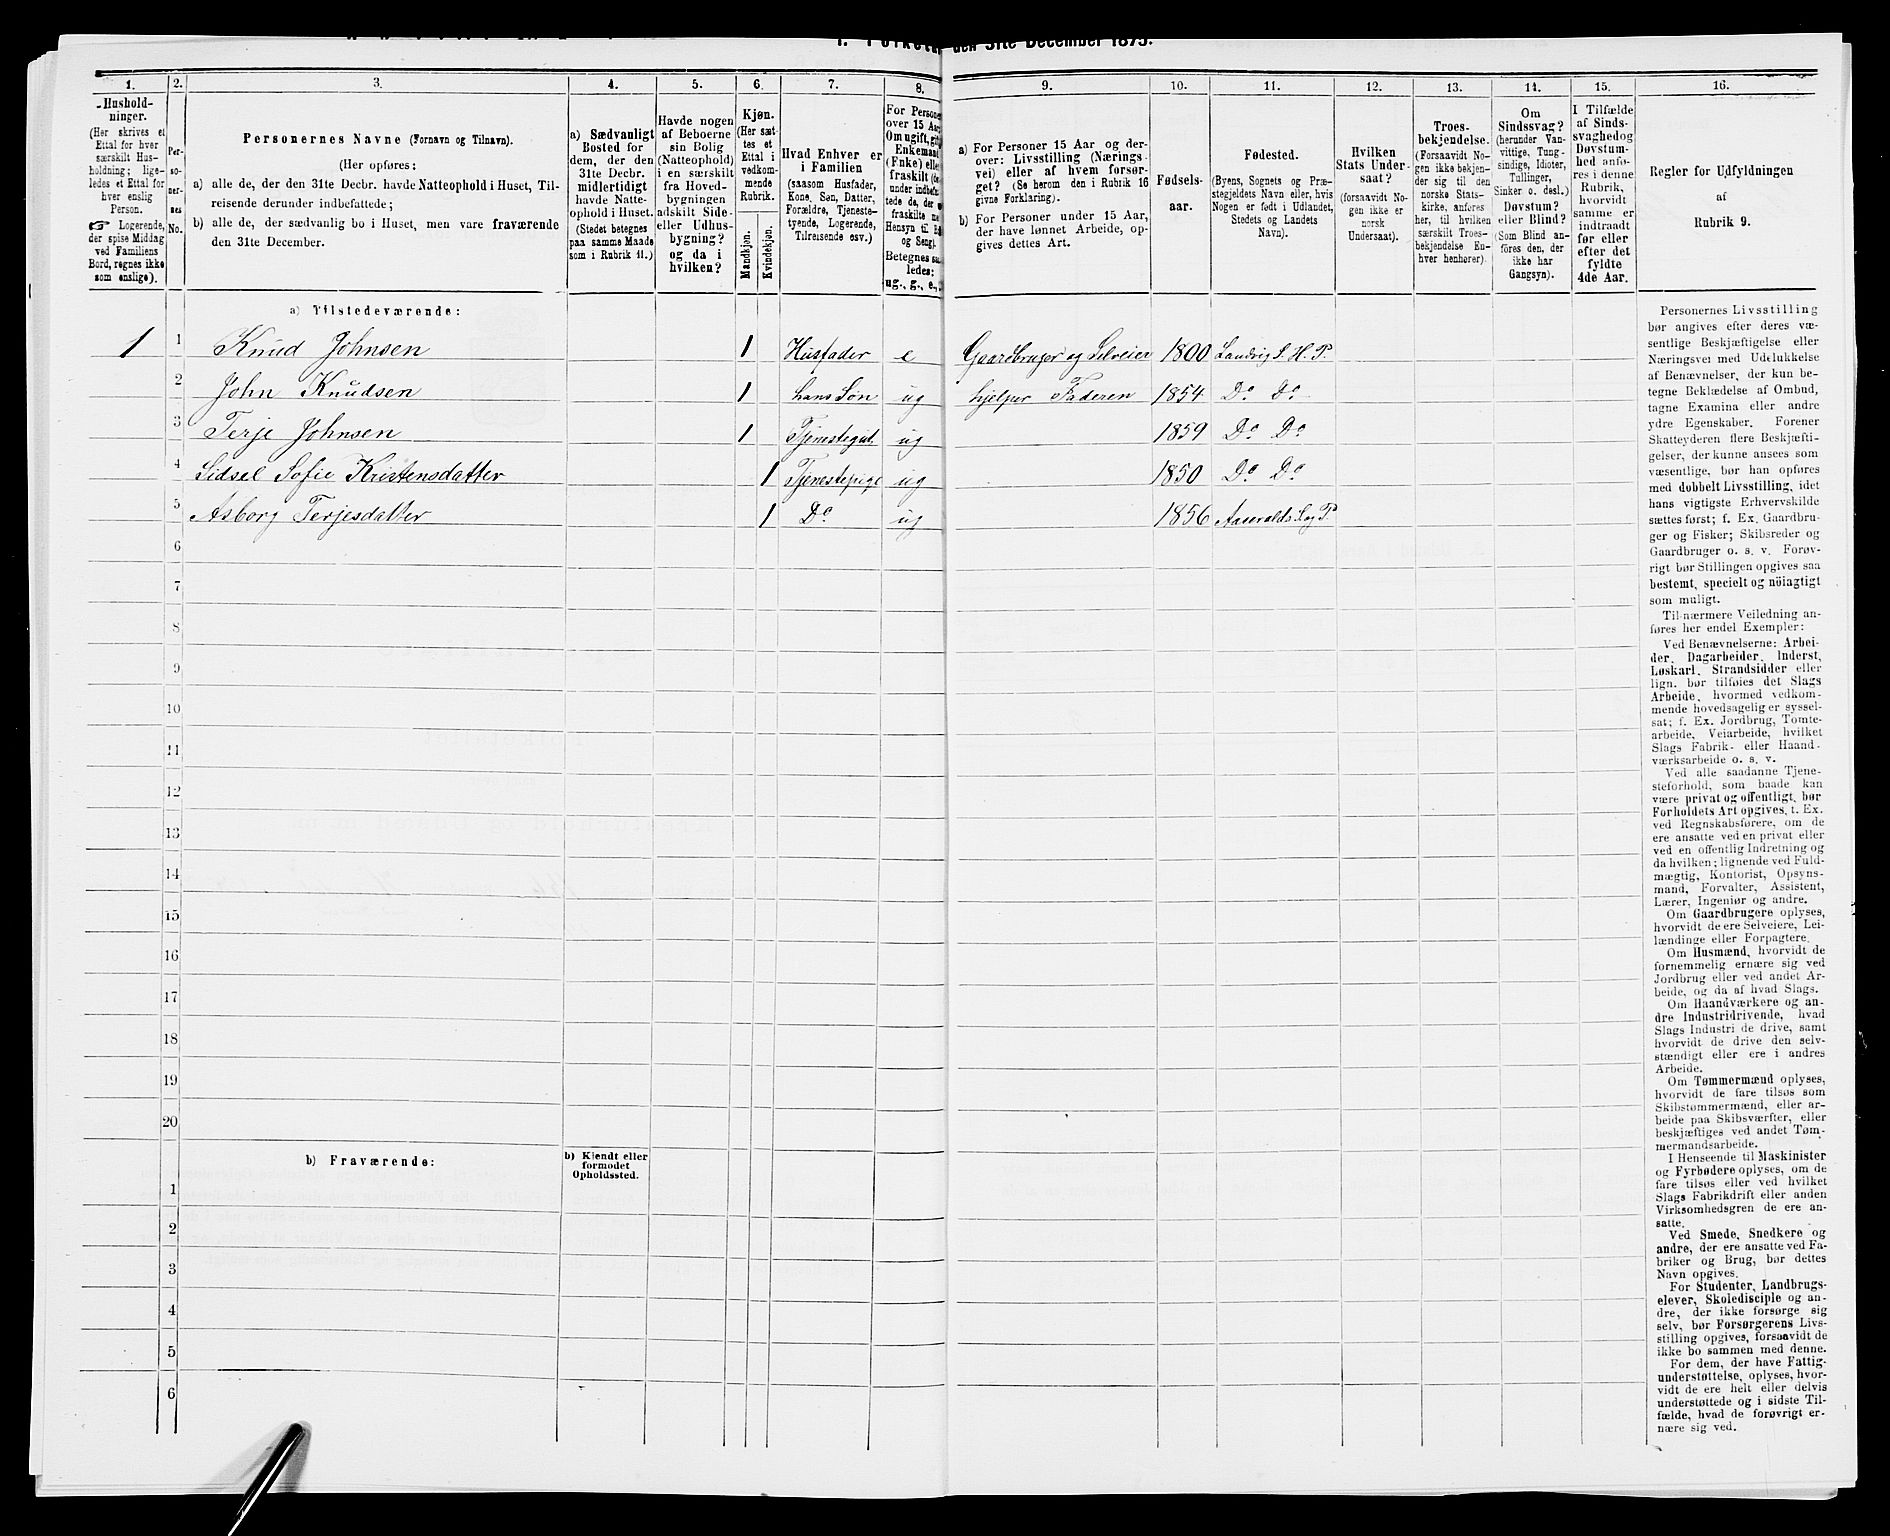 den 31te December 1875.
1. 2. 3. 4. 5. 6. 7. 8. 9. 10. 11. 12. 13. 14. 15. 16.
Hushold-
ninger.
(Her skrives et
Ettal for hver
særskilt Hus-
holdning; lige-
ledes et Ettal for
hver enslig
Person.
☞ Logerende,
der spise Middag
ved Familiens
Bord, regnes ikke
som enslige).
Per-
so-
ner-
nes
No.
Personernes Navne (Fornavn og Tilnavn).
(Her opføres:
a) alle de, der den 31te Decbr. havde Natteophold i Huset, Til-
reisende derunder indbefattede;
b) alle de, der sædvanlig bo i Huset, men vare fraværende
den 31te December.
a) Sædvanligt
Bosted for
dem, der den
31te Decbr.
midlertidigt
havde Natte-
ophold i Huset.
(Stedet betegnes
paa samme Maade
som i Rubrik 11.)
Havde nogen
af Beboerne
sin Bolig
(Natteophold)
i en særskilt
fra Hoved-
bygningen
adskilt Side-
eller Udhus-
bygning?
og da i
hvilken?
Kjøn.
(Her sæt-
tes et
Ettal i
vedkom-
mende
Rubrik.
Mandkjøn.
Kvindekjøn.
Hvad Enhver er
i Familien
(saasom Husfader,
Kone, Søn, Datter,
Forældre, Tjeneste-
tyende, Logerende,
Tilreisende osv.)
For Persone
over 15 Aar
Om ugift, gift
Enkemand
(Enke) elle
fraskilt
under indbefat-
tede de, der
fraskilte
Hensyn til B
og Seng).
Betegnes saa
ledes:
ug., g., e.,
a) For Personer 15 Aar og der-
over: Livsstilling (Nærings-
vei) eller af hvem forsør-
get? (Se herom den i Rubrik 16
givne Forklaring).
b) For Personer under 15 Aar,
der have lønnet Arbeide, op-
gives dettes Art.
Fødsels-
aar.
Fødested.
(Byens, Sognets og Præ-
stegjeldets Navn eller, hvis
Nogen er født i Udlandet,
Stedets og Landets
Navn).
Hvilken
Stats Under-
saat?
(forsaavidt No-
gen ikke er
norsk
Undersaat).
Troes-
bekjendelse.
(Forsaavidt No-
gen ikke bekjen-
der sig til den
norske Stats-
kirke, anføres
her, til hvilken
særskilt Troes-
bekjendelse En-
hver henhører).
Om
Sindssvag?
(herunder Van-
vittige, Tung-
sindige, Idioter,
Tullinger,
Sinker o. desl.)
Døvstum?
eller Blind?
(Som Blind an-
føres den, der
ikke har
Gangsyn).
I Tilfælde
af Sinds-
svaghed og
Døvstum-
hed anfø-
res i denne
Rubrik,
hvorvidt
samme er
indtraadt
før eller
efter det
fyldte
4de Aar.
Regler for Udfyldningen
af
Rubrik 9.
a) Tilstedeværende:
1 1 Knud Johnsen 1 Husfader e Gaardbruger og Selveier 1800 Landvig S. H. P.
2 John Knudsen 1 hans Søn ug hjelper Faderen 1854 Do Do
3 Terje Johnsen 1 Tjenestegut ug 1859 Do Do
4 Sidsel Sofie Kristensdatter 1 Tjenestepige ug 1850 Do Do
5 Asborg Terjesdatter 1 Do ug 1856 Aaseralds S og P.
6
7
8
9
10
11
12
13
14
15
16
17
18
19
20
b) Fraværende:
b) Kjendt eller
formodet
Opholdssted.
1
2
3
4
5
6
Personernes Livsstilling
bør angives efter deres væ-
sentlige Beskjæftigelse eller
Næringsvei med Udelukkelse
af Benævnelser, der kun be-
tegne Beklædelse af Ombud,
tagne Examina eller andre
ydre Egenskaber. Forener
Skatteyderen flere Beskjæfti-
gelser, der kunne ansees som
væsentlige, bør han opføres
med dobbelt Livsstilling, idet
hans vigtigste Erhvervskilde
sættes først; f. Ex. Gaardbru-
ger og Fisker; Skibsreder og
Gaardbruger o. s. v. Forøv-
rigt bør Stillingen opgives saa
bestemt, specielt og nöiagtigt
som muligt.
Til nærmere Veiledning an-
føres her endel Exempler:
Ved Benævnelserne: Arbei-
der, Dagarbeider, Inderst,
Løskarl, Strandsidder eller
lign. bør tilføies det Slags
Arbeide, hvormed vedkom-
mende hovedsagelig er syssel-
sat; f. Ex. Jordbrug, Tomte-
arbeide, Veiarbeide, hvilket
Slags Fabrik- eller Haand-
værksarbeide o. s. v.
Ved alle saadanne Tjene-
steforhold, som baade kan
være privat og offentligt, bør
Forholdets Art opgives, t. Ex.
ved Regnskabsførere, om de
ere ansatte ved en privat eller
ved en offentlig Indretning og
da hvilken; lignende ved Fuld-
mægtig, Kontorist, Opsyns-
mand, Forvalter, Assistent,
Lærer, Ingeniør og andre.
Om Gaardbrugere oplyses,
hvorvidt de ere Selveiere, Lei-
lændinge eller Forpagtere.
Om Husmænd, hvorvidt de
fornemmelig ernære sig ved
Jordbrug eller ved andet Ar-
beide, og da af hvad Slags.
Om Haandværkere og an-
dre Industridrivende, hvad
Slags Industri de drive, samt
hvorvidt de drive den selv-
stændigt eller ere i andres
Arbeide.
Om Tømmermænd oplyses,
hvorvidt de fare tilsøs som
Skibstømmermænd, eller ar-
beide paa Skibsværfter, eller
beskjæftiges ved andet Tøm-
mermandsarbeide.
I Henseende til Maskinister
og Fyrbødere oplyses, om de
fare tilsøs eller ved hvilket
Slags Fabrikdrift eller anden
Virksomhedsgren de ere an-
satte.
Ved Smede, Snedkere og
andre, der ere ansatte ved Fa-
briker og Brug, bør dettes
Navn opgives.
For Studenter, Landbrugs-
elever, Skoledisciple og an-
dre, der ikke forsørge sig
selv, bør Forsørgerens Livs-
stilling opgives, forsaavidt de
ikke bo sammen med denne.
For dem, der have Fattig-
understøttelse, oplyses, hvor-
vidt de ere helt eller delvis
understøttede og i sidste Til-
fælde, hvad de forøvrigt er-
nære sig ved.